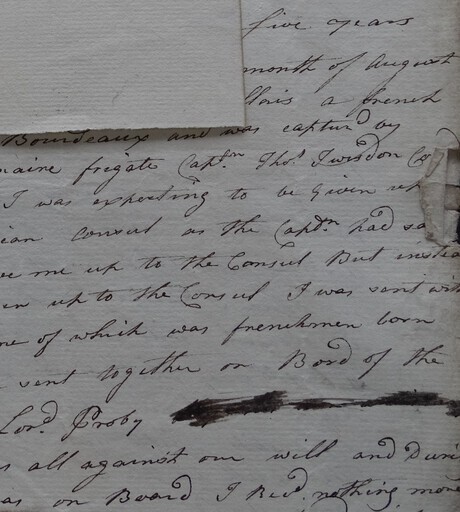 five years
month of August
a french
Bourdeaux and was captur'd by
maine frigate Captn Thos Twisdon
I was expecting to be Given up
ican consul as the Captn had sa
ve me up to the Consul But instea
en up to the Consul I was sent with
me of which was frenchmen born
sent together on Bord of the
Lord Proby
s all against our will and Duri
as on Board I Recd nothing more